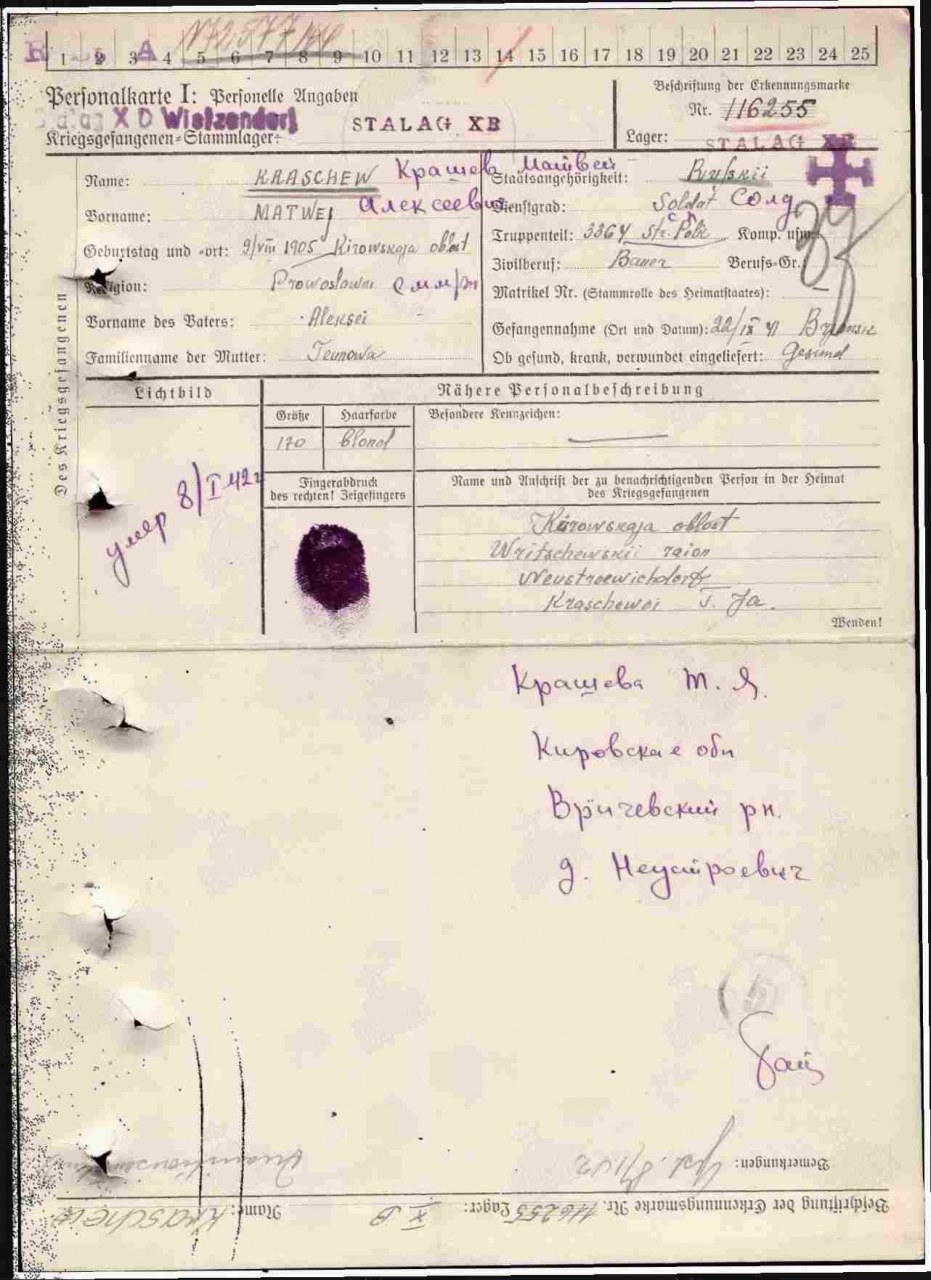 1 2 3 4 5 6 7 8 9 10 11 12 13 14 15 16 17 18 19 20 21 22 23 24 25
A
Personalkarte I: Personelle Angaben
X D Wietzendorf
Kriegsgefangenen-Stammlager:
STALAG XB
Beschriftung der Erkennungsmarke
Nr. 116255
Lager: STALAG XB
Des Kriegsgefangenen
Name: KRASCHEW Крашев Матвей
Vorname: MATWEJ Алексеевич
Geburtstag und -ort: 9/VIII 1905 Kirowskaja oblast
Religion: Prowoslawni
Vorname des Vaters: Aleksei
Familienname der Mutter:
Staatsangehörigkeit: Rußkii
Dienstgrad: Soldat Солд
Truppenteil: 3364 Str. Polk Komp. usw.:
Zivilberuf: Bauer Berufs-Gr.:
Matrikel Nr. (Stammrolle des Heimatstaates):
Gefangennahme (Ort und Datum): 22/IX 41
Ob gesund, krank, verwundet eingeliefert: Gesund
Lichtbild
умер 8/I 42г
Nähere Personalbeschreibung
Größe Haarfarbe Besondere Kennzeichen:
170 blond
Fingerabdruck
des rechten! Zeigefingers
Name und Anschrift der zu benachrichtigenden Person in der Heimat
des Kriegsgefangenen
Kirowskaja oblast
Writschewskii raion
Neustroewichdorf
Kraschewoi T. Ja.
Wenden!
Крашева Т. Я.
Кировская обл
Вричевский рн.
д. Неустроевич
Bemerkungen:
Beschriftung der Erkennungsmarke Nr. 116255 Lager: X B Name: KRASCHEW